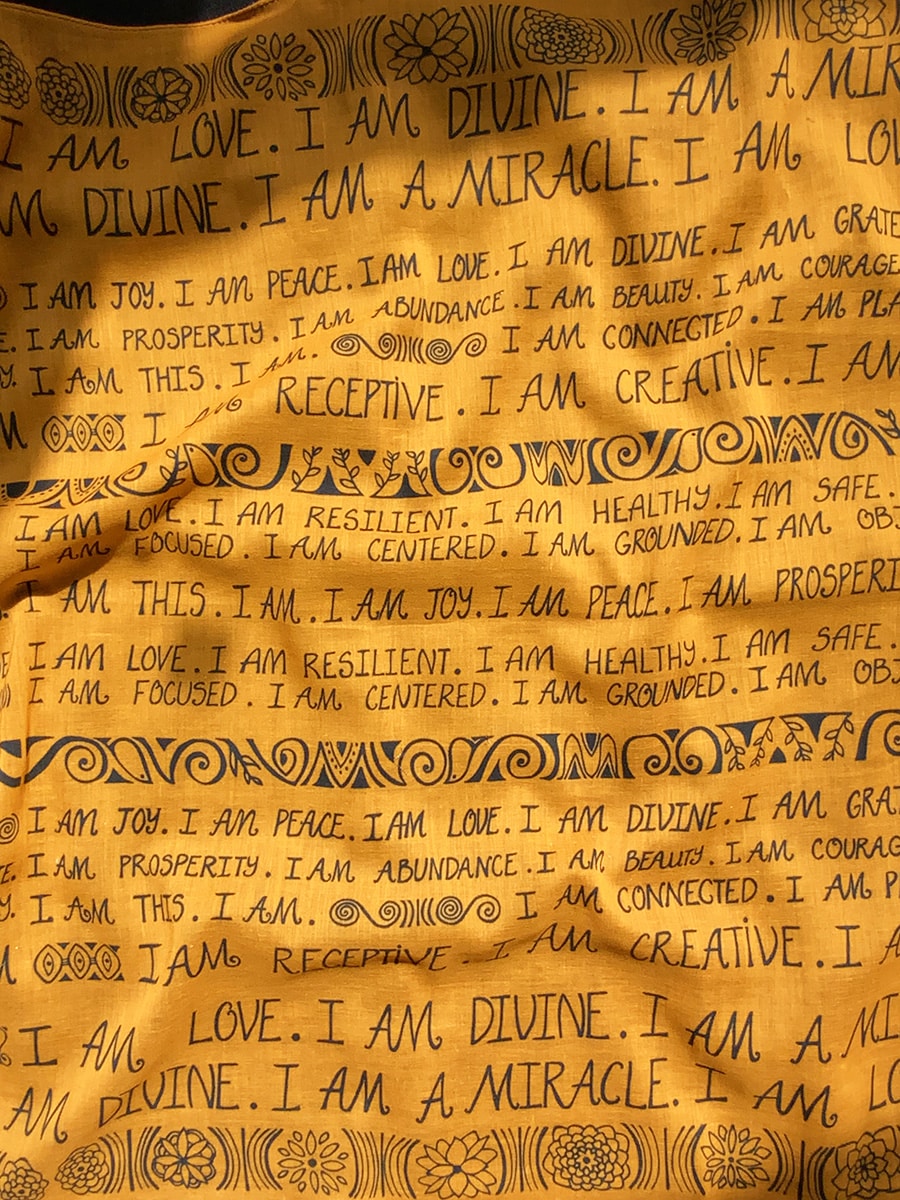 I AM LOVE. I AM DIVINE. I AM A MIR
AM DIVINE. I AM A MIRACLE. I AM LOV
I AM JOY. I AM PEACE. I AM LOVE. I AM DIVINE. I AM GRATE
E. I AM PROSPERITY. I AM ABUNDANCE. I AM BEAUTY. I AM COURAGE
Y. I AM THIS. I AM. I AM CONNECTED. I AM PLA
M I AM RECEPTIVE. I AM CREATIVE. I AM
I AM LOVE. I AM RESILIENT. I AM HEALTHY. I AM SAFE.
I AM FOCUSED. I AM CENTERED. I AM GROUNDED. I AM OBJ
I AM THIS. I AM. I AM JOY. I AM PEACE. I AM PROSPERI
I AM LOVE. I AM RESILIENT. I AM HEALTHY. I AM SAFE.
I AM FOCUSED. I AM CENTERED. I AM GROUNDED. I AM OBJ
I AM JOY. I AM PEACE. I AM LOVE. I AM DIVINE. I AM GRAT
E. I AM PROSPERITY. I AM ABUNDANCE. I AM BEAUTY. I AM COURAG
Y. I AM THIS. I AM. I AM CONNECTED. I AM P
M I AM RECEPTIVE. I AM CREATIVE. I A
I AM LOVE. I AM DIVINE. I AM A MI
AM DIVINE. I AM A MIRACLE. I AM LO